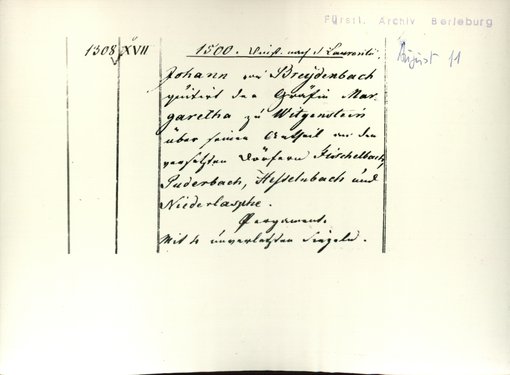 Fürstl. Archiv Berleburg
1308 XVII 1500. Dienst. nach s. Laurentii.
August 11
Johann von Breydenbach
quitirt der Gräfin Mar-
garetha zu Witgenstein
über seinen Antheil an den
versetzten Dörfern Fischelbach,
Puderbach, Hesselnbach und
Niederlasphe.
Pergament.
Mit 4 unverletzten Siegeln.